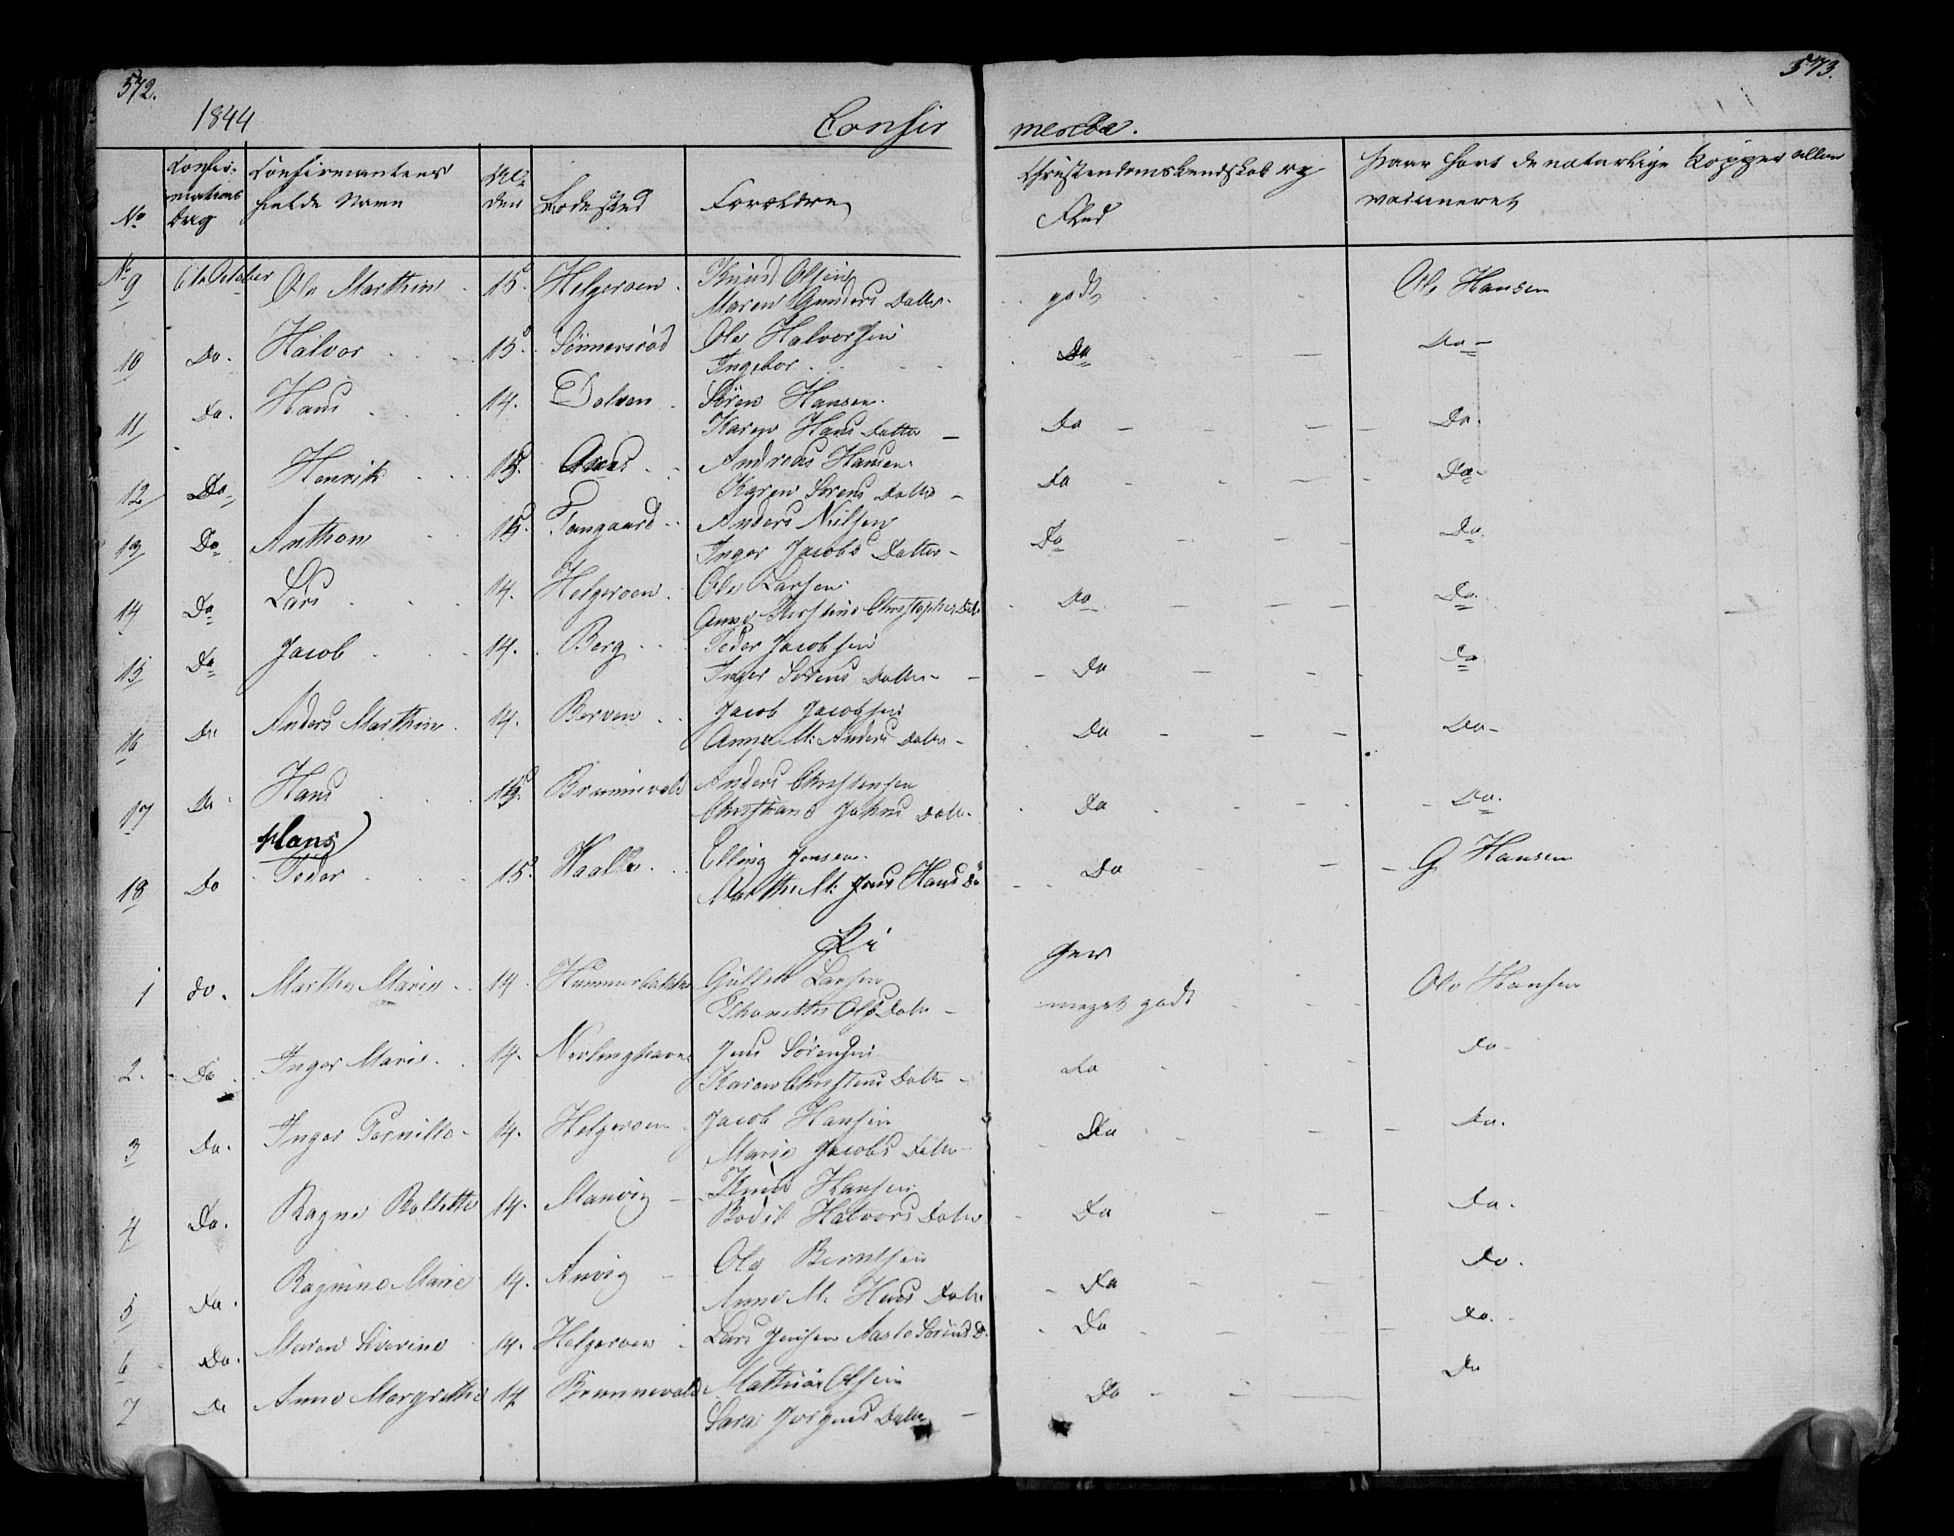 572.
573.
1844
Confir
merede.
No
Confir-
mations
Dag
Confirmantens
fulde Navn
Al-
der
Bodested
Forældre
Christendomskundskab og
Flid
Naar havt de naturlige Kopper eller
vaccineret
No 9 6te October Ole Marthin 15. Helgeroen
Knud Olsen
Maren Gunders Datter
godt
Ole Hansen
10 Do. Halvor 15. Sønnersrød
Ole Halvorsen
Ingebor
Do
Do
11 Do. Hans 14. Dolven
Søren Hansen
Karen Hans Datter
Do
Do.
12 Do Henrik 15.
Andreas Hansen
Karen Sørens Datter
Do
Do
13 Do Anthom 15. Tomgaard
Anders Nielsen
Inger Jacobs Datter
Do
Do.
14 Do Lars 14. Helgeroen
Ole Larsen
Anne Kirstine Christophers Dat
Do
Do.
15 Do Jacob 14. Berg
Peder Jacobsen
Inger Sørens Datter
Do
Do
16 Do Anders Marthin 14. Berven
Jacob Jacobsen
Anne M: Anders Datter
Do
Do
17 Do Hans 15. Brunnevald
Anders Christensen
Christiane Johns Datter
Do
Do.
Hans
18 Do Peder 15. Haalle
Elling Jensen
Marthe M: Jens Hans D
Do
G Hansen
Pi
ger
1 do. Marthe Marie 14 Hummerbakken
Gullek Larsen
Thorethe Ols Datter
meget godt
Ole Hansen
2. Do Inger Marie 14. Nevlunghavn
Jens Sørensen
Karen Christens Datter
do
do
3 Do. Inger Pernille 14. Helgeroen
Jacob Hansen
Marie Jacobs Datter
Do
Do.
4 Do. Ragne Bollette 14. Manvig
Knud Hansen
Bodil Halvors Datter
Do
Do.
5 Do. Ragnine Marie 14. Anvig
Ole Berntsen
Anne M. Hans Datter
Do
Do.
6 Do. Maren Severine 14. Helgeroen
Lars Jensen Aaste Sørens D.
Do
do.
7 Do Anne Margrethe 14 Brunnevald
Mathias Olsen
Sara Jørgens Datter
Do
Do